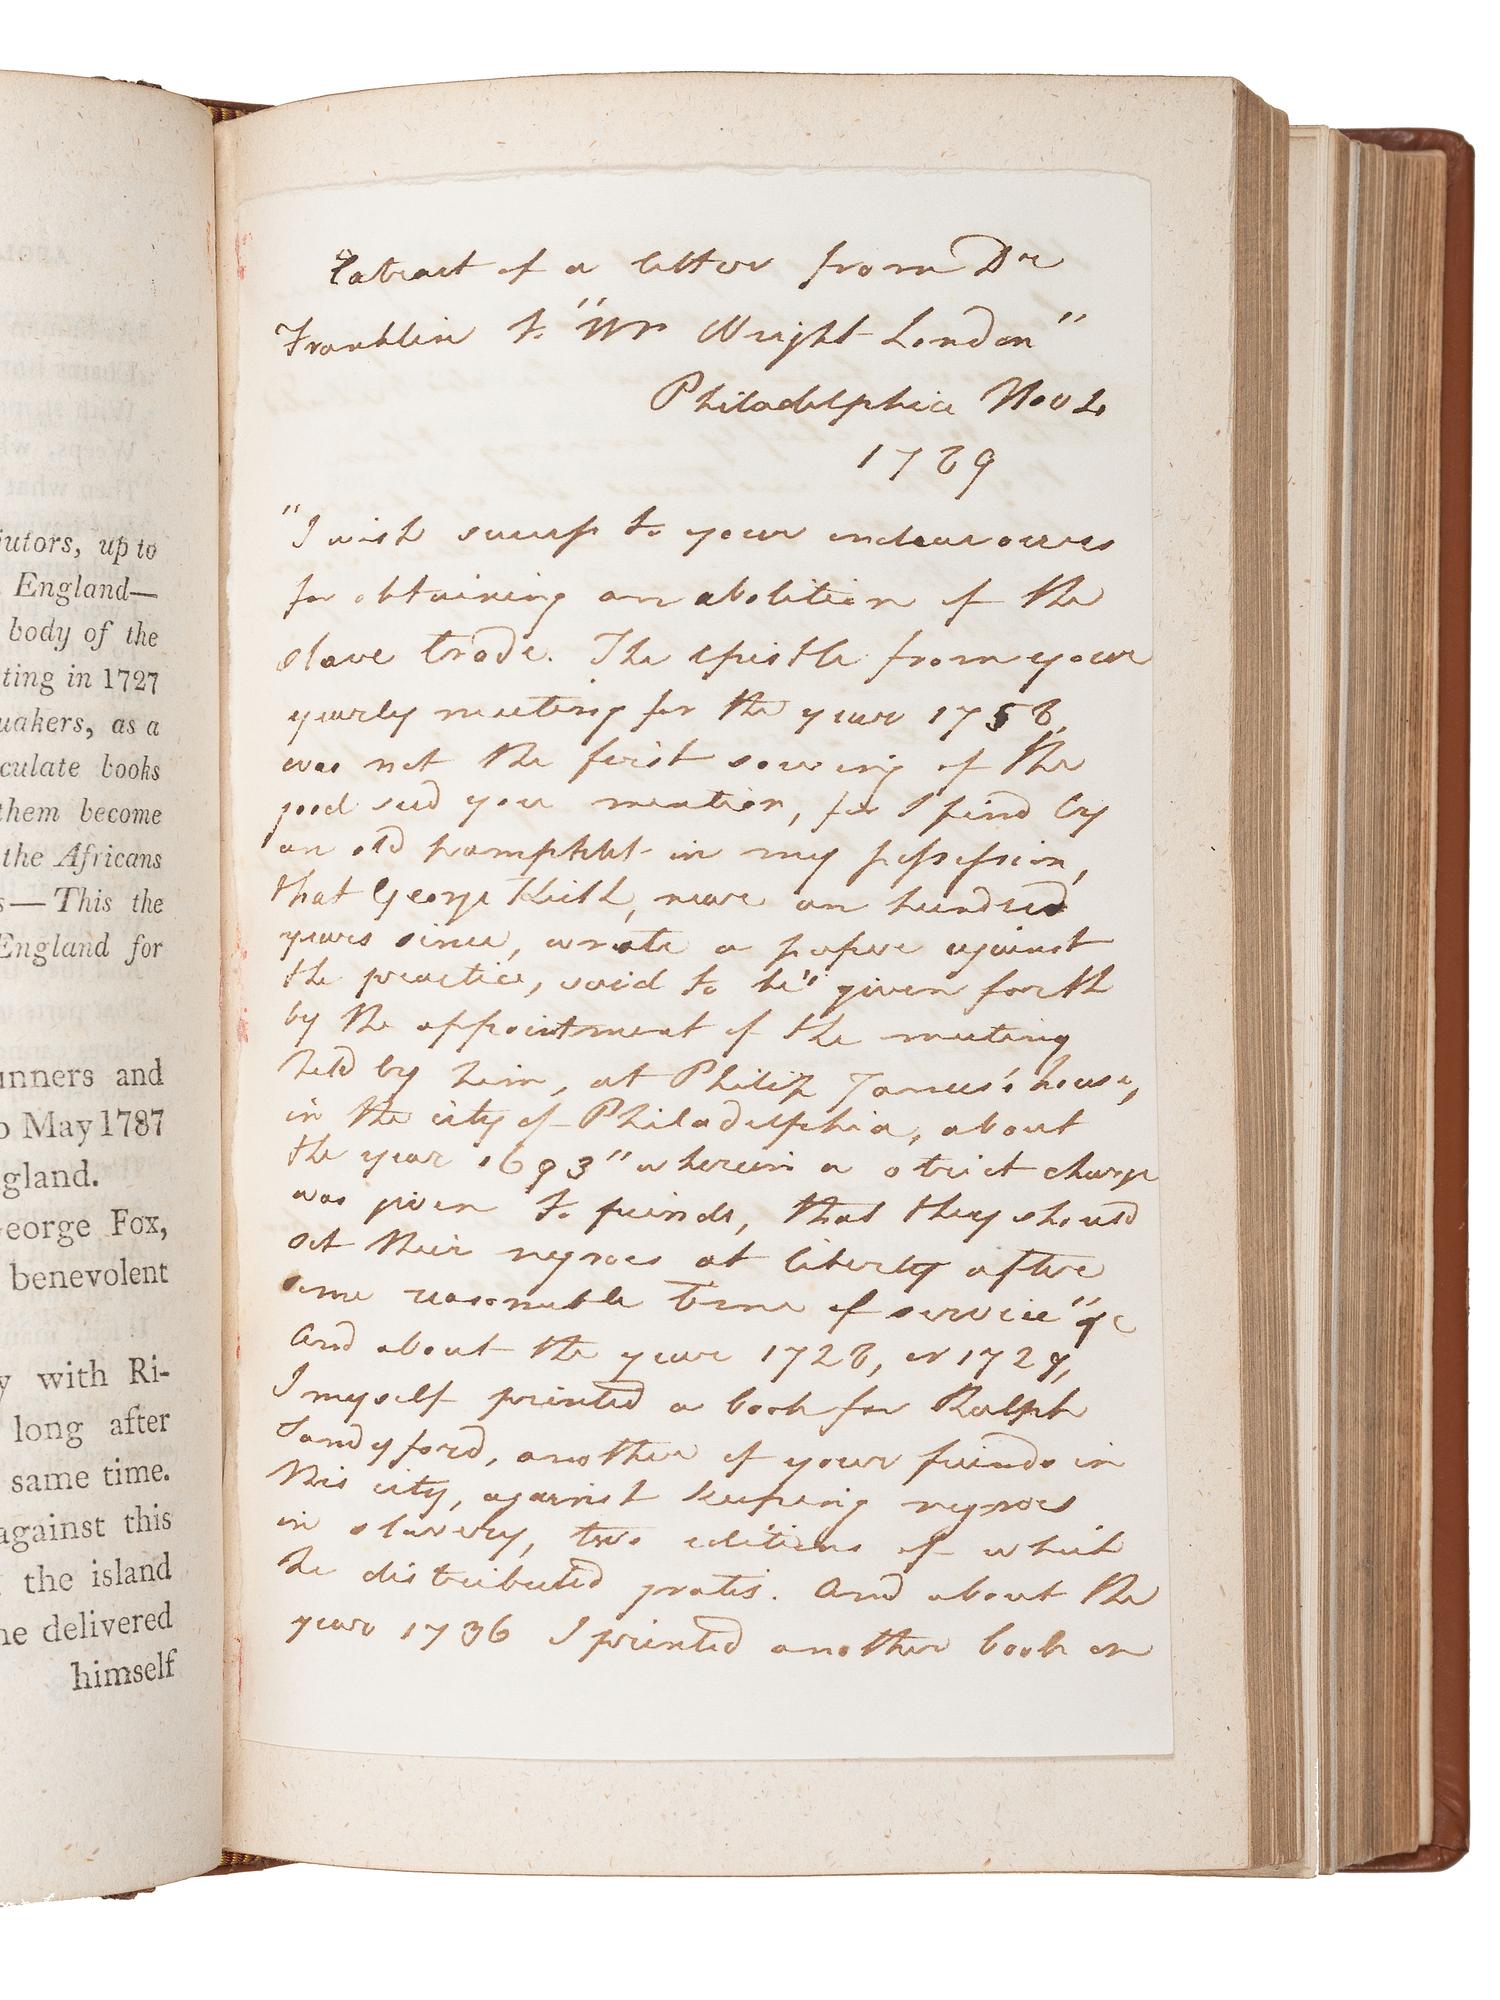 jutors, up to
England—
body of the
ting in 1727
uakers, as a
culate books
them become
the Africans
s—This the
England for
nners and
o May 1787
gland.
eorge Fox,
benevolent
y with Ri-
long after
same time.
against this
the island
ne delivered
himself
Extract of a letter from Dr
Franklin to "Mr Wright London"
Philadelphia Nov 4
1789
"I wish success to your endeavours
for obtaining an abolition of the
slave trade. The epistle from your
yearly meeting for the year 1758,
was not the first sowing of the
good seed you mention, for I find by
an old pamphlet in my possession,
that George Keith, near an hundred
years since, wrote a paper against
the practice, said to be "given forth
by the appointment of the meeting
held by him, at Philip James's house,
in the city of Philadelphia, about
the year 1693" wherein a strict charge
was given to friends, that they should
set their negroes at liberty after
some reasonable time of service" &c
And about the year 1728, or 1729,
I myself printed a book for Ralph
Sandyford, another of your friends in
this city, against keeping negroes
in slavery, two editions of which
he distributed gratis. And about the
year 1736 I printed another book on